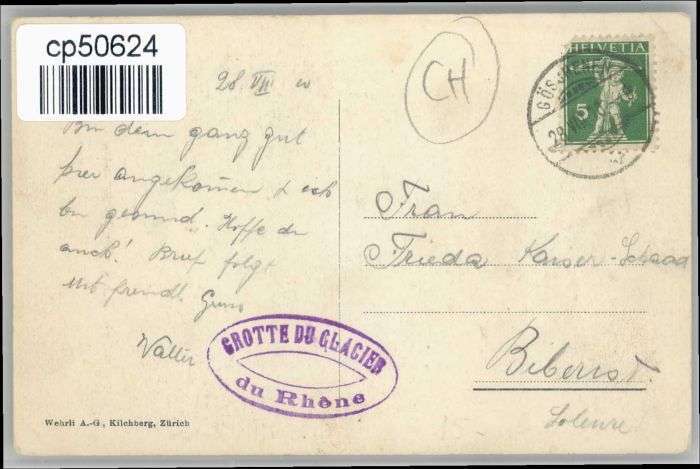 cp50624
28 VII
CH
HELVETIA
5
GÖS
28
Bin dem ganz gut
hier angekommen & ich
bin gesund. Hoffe du
auch! Brief folgt
Mit freundl. Gruss
Walter
Frau
Frieda Kaiser-Schaad
Biberist.
Soleure
GROTTE DU GLACIER
du Rhône
Wehrli A.-G., Kilchberg, Zürich